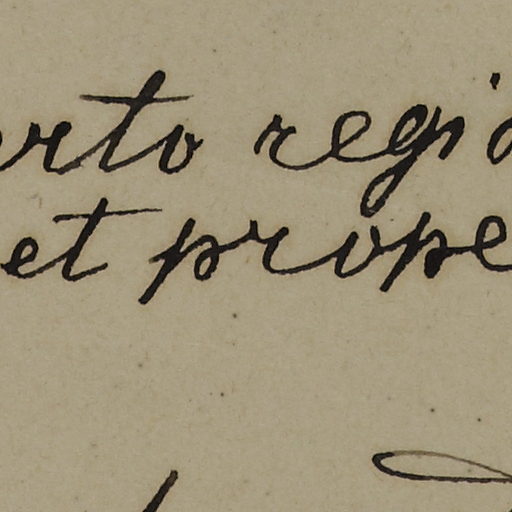 orto regio
et prope